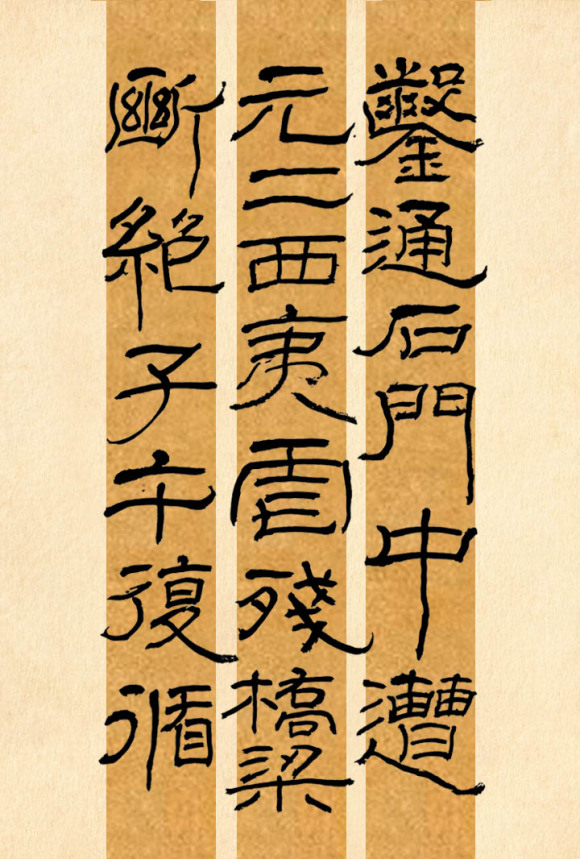 鑿通石門中遭
元二西夷虐殘橋梁
斷絕子午復循